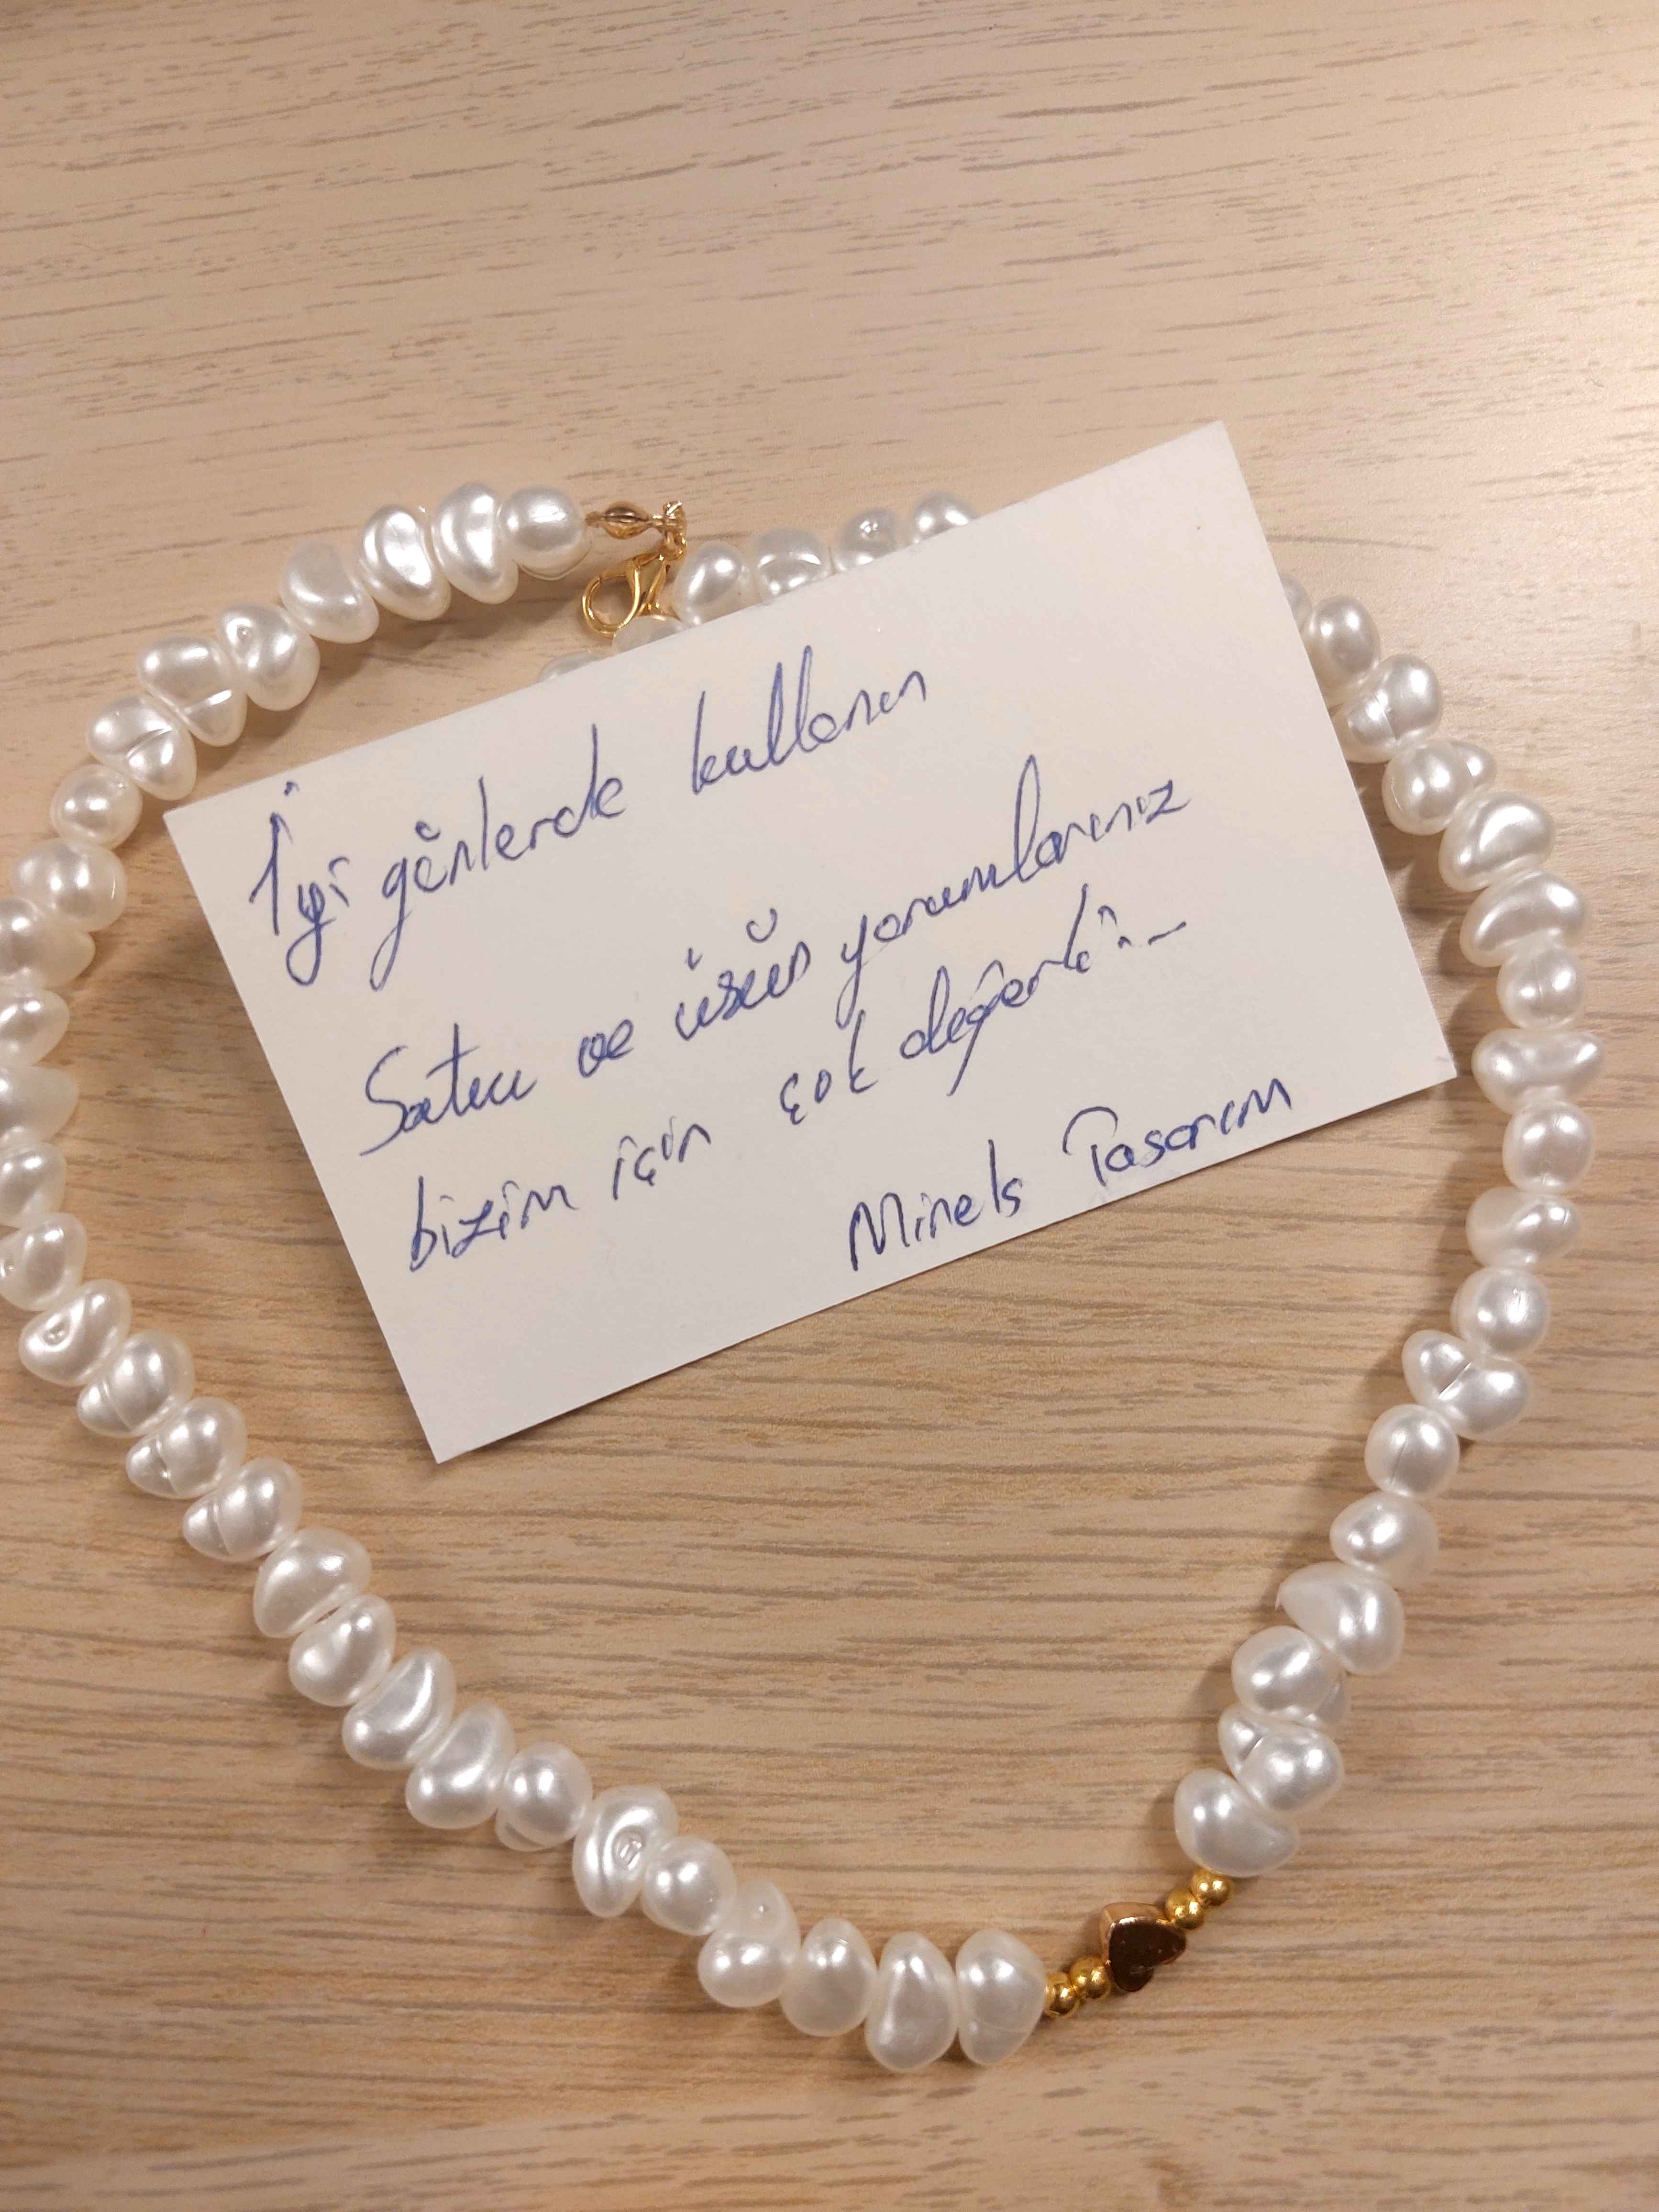 İyi günlerde kullanın
Satıcı ve ürün yorumlarınız
bizim için çok değerli..
Minels Tasarım